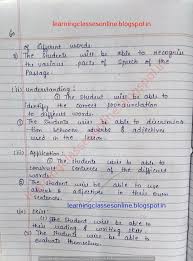 learningclassesonline.blogspot.in
6
of different words.
ii) The students will be able to recognise
the various parts of speech of the
Passage.
(ii) Understanding :
① The student will be able to
identify the correct pronunciation
to different words.
② The students will be able to discrimina
tion between adverbs & adjectives
used in the lesson.
(iii) Application :
① The student will be able to
construct sentences of the difficult
words.
② The student will be able to use
adverb & adjectives in their own
sentences.
learningclassesonline.blogspot.in
(iv) Skill :
(i) The student will be able to
their reading & writing skill
(ii) The students will be able to
evaluate themselves.